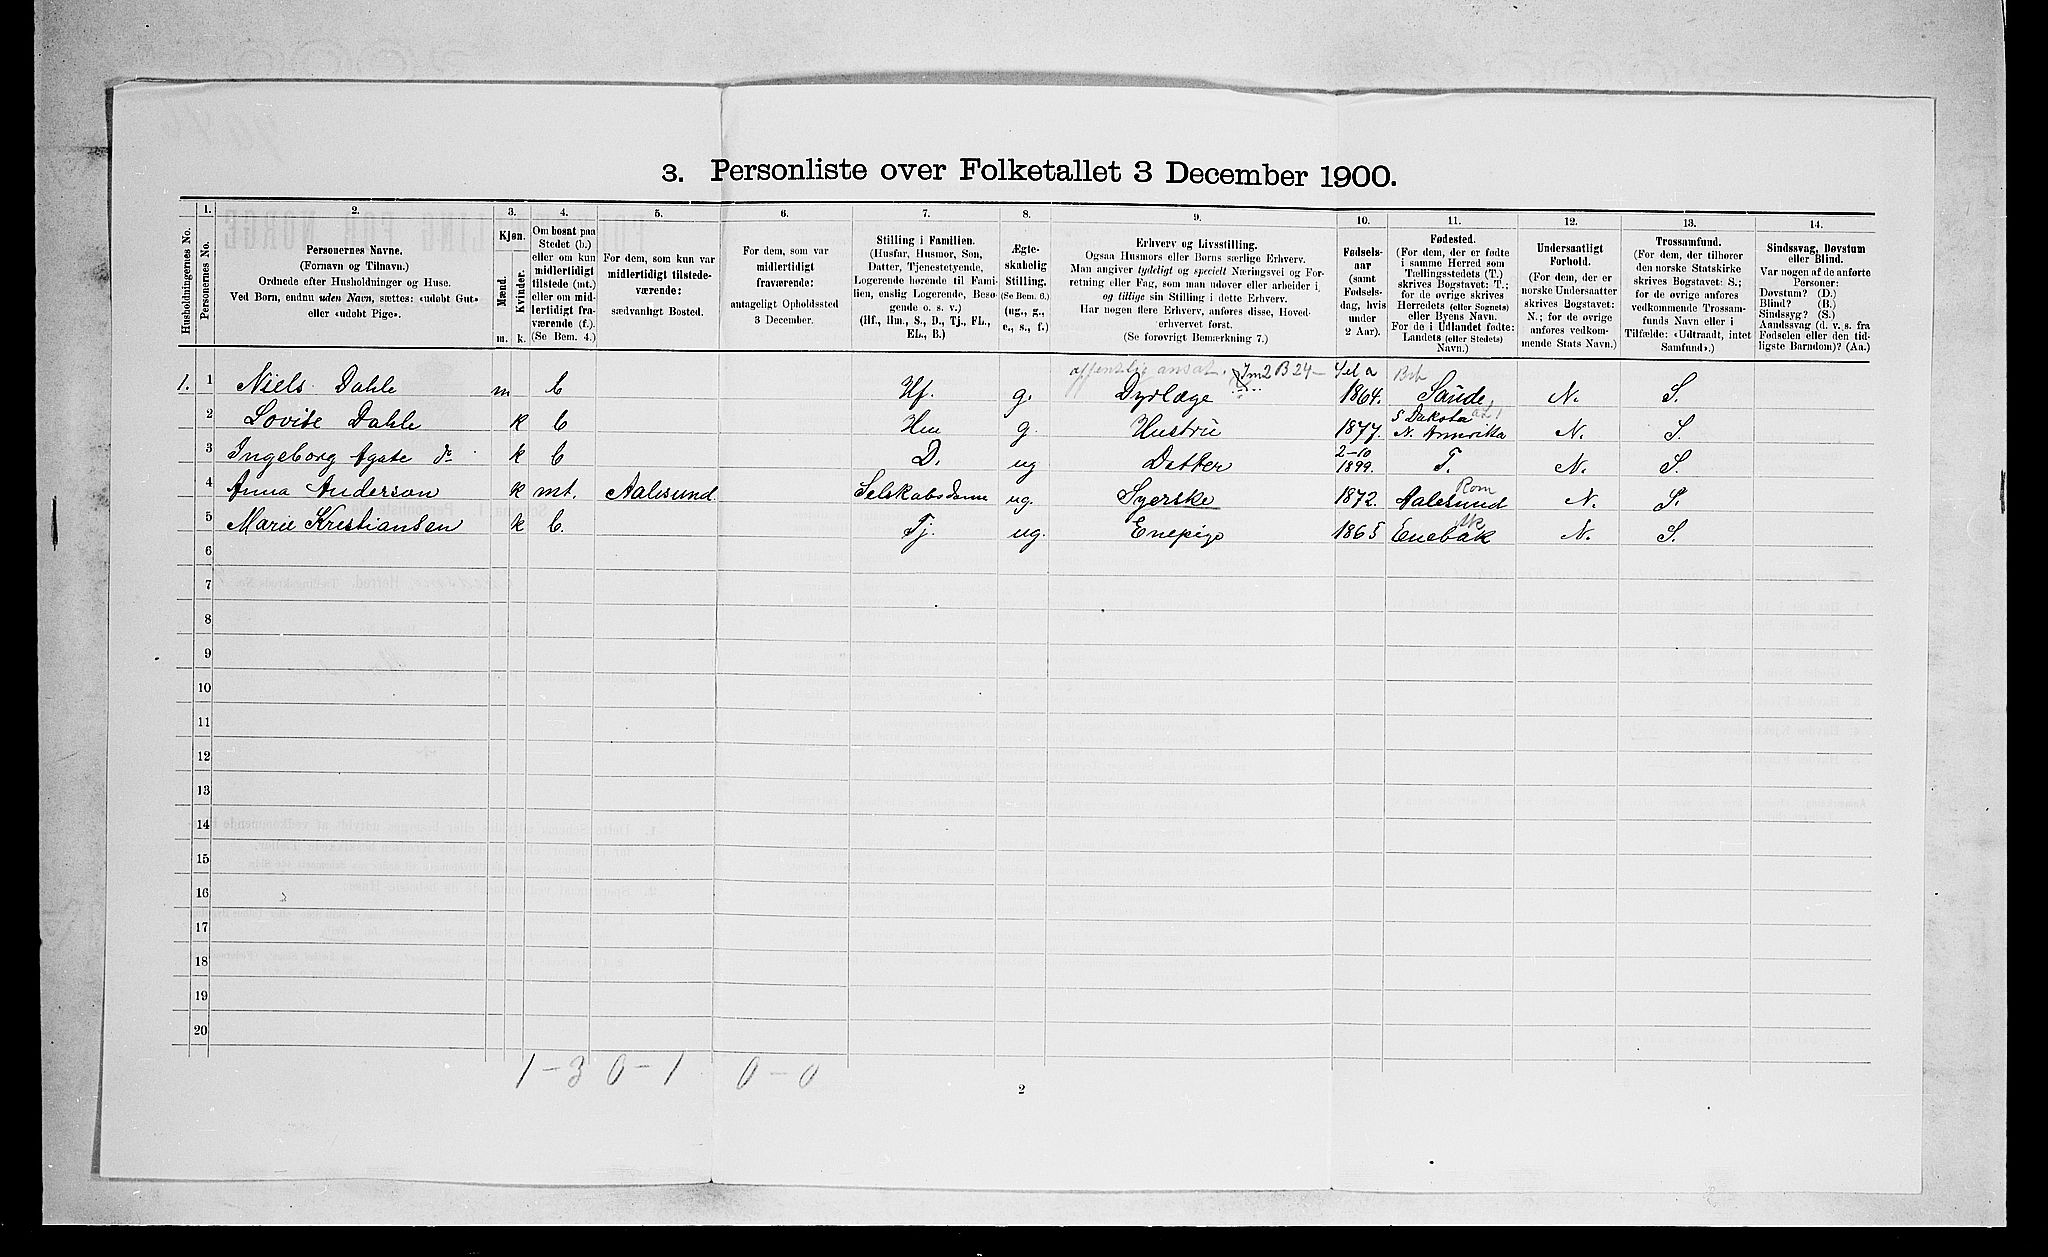 3. Personliste over Folketallet 3 December 1900.
1. 2. 3. 4. 5. 6. 7. 8. 9. 10. 11. 12. 13. 14.
Husholdningernes No.
Personernes No.
Personernes Navne.
(Fornavn og Tilnavn.)
Ordnede efter Husholdninger og Huse.
Ved Børn, endnu uden Navn, sættes: «udøbt Gut»
eller «udøbt Pige».
Kjøn.
Mænd.
Kvinder.
m. k.
Om bosat paa
Stedet (b.)
eller om kun
midlertidigt
tilstede (mt.)
eller om mid-
lertidigt fra-
værende (f.).
(Se Bem. 4.)
For dem, som kun var
midlertidigt tilstede-
værende:
sædvanligt Bosted.
For dem, som var
midlertidigt
fraværende:
antageligt Opholdssted
3 December.
Stilling i Familien.
(Husfar, Husmor, Søn,
Datter, Tjenestetyende,
Logerende hørende til Fami-
lien, enslig Logerende, Besø-
gende o. s. v.)
(Hf., Hm., S., D., Tj., FL.,
EL., B.)
Ægte-
skabelig
Stilling.
(Se Bem. 6.)
(ug., g.,
e., s., f.)
Erhverv og Livsstilling.
Ogsaa Husmors eller Børns særlige Erhverv.
Man angiver tydeligt og specielt Næringsvei og For-
retning eller Fag, som man udøver eller arbeider i,
og tillige sin Stilling i dette Erhverv.
Har nogen flere Erhverv, anføres disse, Hoved-
erhvervet først.
(Se forøvrigt Bemærkning 7.)
Fødsels-
aar
(samt
Fødsels-
dag, hvis
under
2 Aar).
Fødested.
(For dem, der er fødte
i samme Herred som
Tællingsstedets (T.)
skrives Bogstavet: T.;
for de øvrige skrives
Herredets (eller Sognets)
eller Byens Navn.
For de i Udlandet fødte:
Landets (eller Stedets)
Navn.)
Undersaatligt
Forhold.
(For dem, der er
norske Undersaatter
skrives Bogstavet:
N.; for de øvrige
anføres vedkom-
mende Stats Navn.)
Trossamfund.
(For dem, der tilhører
den norske Statskirke
skrives Bogstavet: S.;
for de øvrige anføres
vedkommende Trossam-
funds Navn eller i
Tilfælde: «Udtraadt, intet
Samfund».)
Sindssvag, Døvstum
eller Blind.
Var nogen af de anførte
Personer:
Døvstum? (D.)
Blind? (B.)
Sindssyg? (S.)
Aandssvag (d. v. s. fra
Fødselen eller den tid-
ligste Barndom)? (Aa.)
offentlig ansat. Im2 B 24
1. 1 Niels Dahle m b Hf. g. Dyrlæge 1864. Saude. N. S.
S Dakota
2 Lovise Dahle k b Hm g. Hustru 1877. N. Amerikka N. S.
2-10
3 Ingeborg Agate do k b D. ug Datter 1899. T. N. S.
Rom
4 Anna Anderson k mt. Aalesund Selskabsdame ug. Syerske 1872. Aalesund N. S.
Ak
5 Marie Kristiansen k b. Tj. ug. Enepige 1865 Enebak N. S.
6
7
8
9
10
11
12
13
14
15
16
17
18
19
20
1 - 3 0 - 1 0 - 0
2